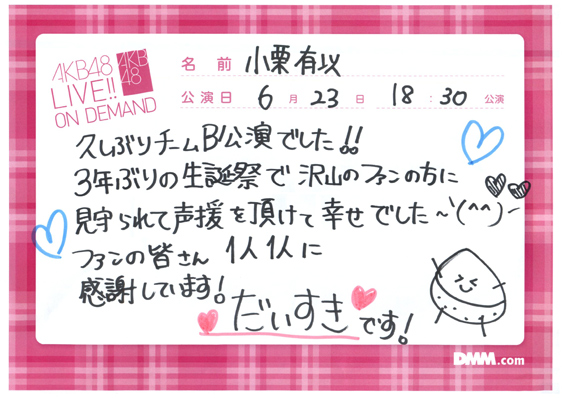 AKB48
LIVE!!
ON DEMAND
AKB
48
名前 小栗有以
公演日 6月23日 18:30公演
久しぶりチームB公演でした!!
3年ぶりの生誕祭で沢山のファンの方に
見守られて声援を頂けて幸せでした~\(^^)/
ファンの皆さん 1人1人に
感謝しています!
だいすきです!
DMM.com